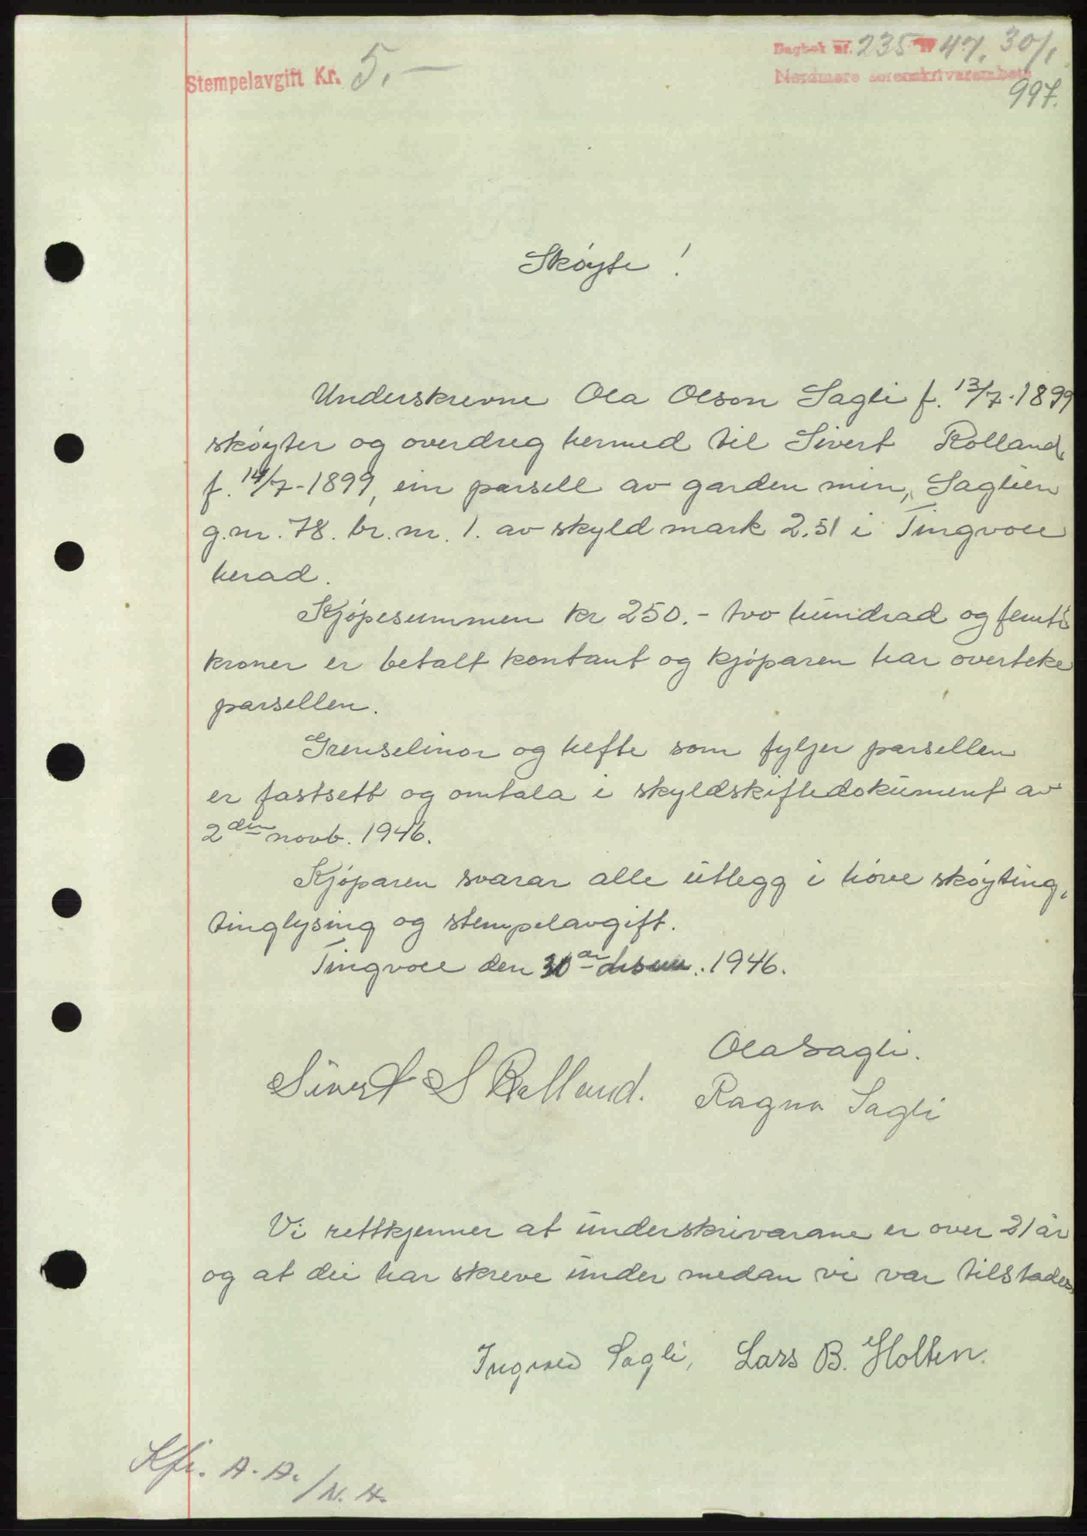 Stempelavgift Kr. 5,—
Dagbok nr. 235 47, 30/1
Nordmøre sorenskriverembete
997.
Skøyte!
Underskrivne Ola Olson Sagli f. 13/7-1899
skøyter og overdreg hermed til Sivert Rolland,
f. 14/7-1899, ein parsell av garden min, Saglien
g.nr. 78. br.nr. 1. av skyld mark 2.51 i Tingvoll
herad.
Kjøpesummen kr 250.- tvo hundrad og femti
kroner er betalt kontant og kjøparen har overteke
parsellen.
Grenselinor og hefte som fylgjer parsellen
er fastsett og omtala i skyldskiftedokument av
2den novb. 1946.
Kjøparen svarar alle utlegg i høve skøyting,
tinglysing og stempelavgift.
Tingvoll den 30 desem. 1946.
Ola Sagli.
Sivert S Rolland. Ragna Sagli
Vi rettkjenner at underskrivarane er over 21 år
og at dei har skreve under medan vi var tilstades
Ingvald Sagli, Lars B. Holten.
Kfr. A. A. / N. H.